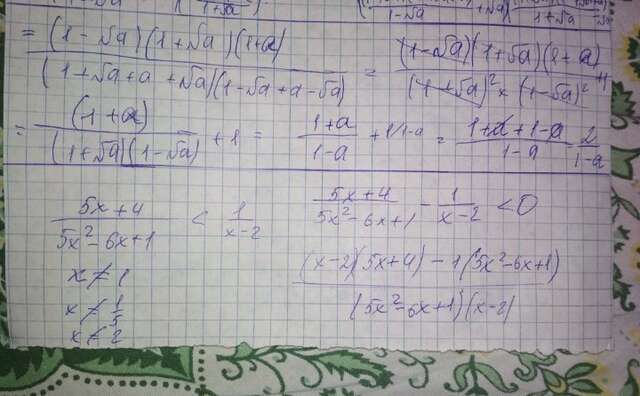 = (1-√a)(1+√a)(1+a) / (1+√a+a+√a)(1-√a+a-√a) = (1-√a)(1+√a)(1+a) / (1+√a)² × (1-√a)² +1
= (1+a) / (1+√a)(1-√a) + 1 = 1+a / 1-a + 1/1-a = 1+a+1-a / 1-a = 2 / 1-a
5x+4 / 5x²-6x+1 < 1 / x-2
x ≠ 1
x ≠ 1/5
x ≠ 2
5x+4 / 5x²-6x+1 - 1 / x-2 < 0
(x-2)(5x+4) - 1(5x²-6x+1) / (5x²-6x+1)(x-2)